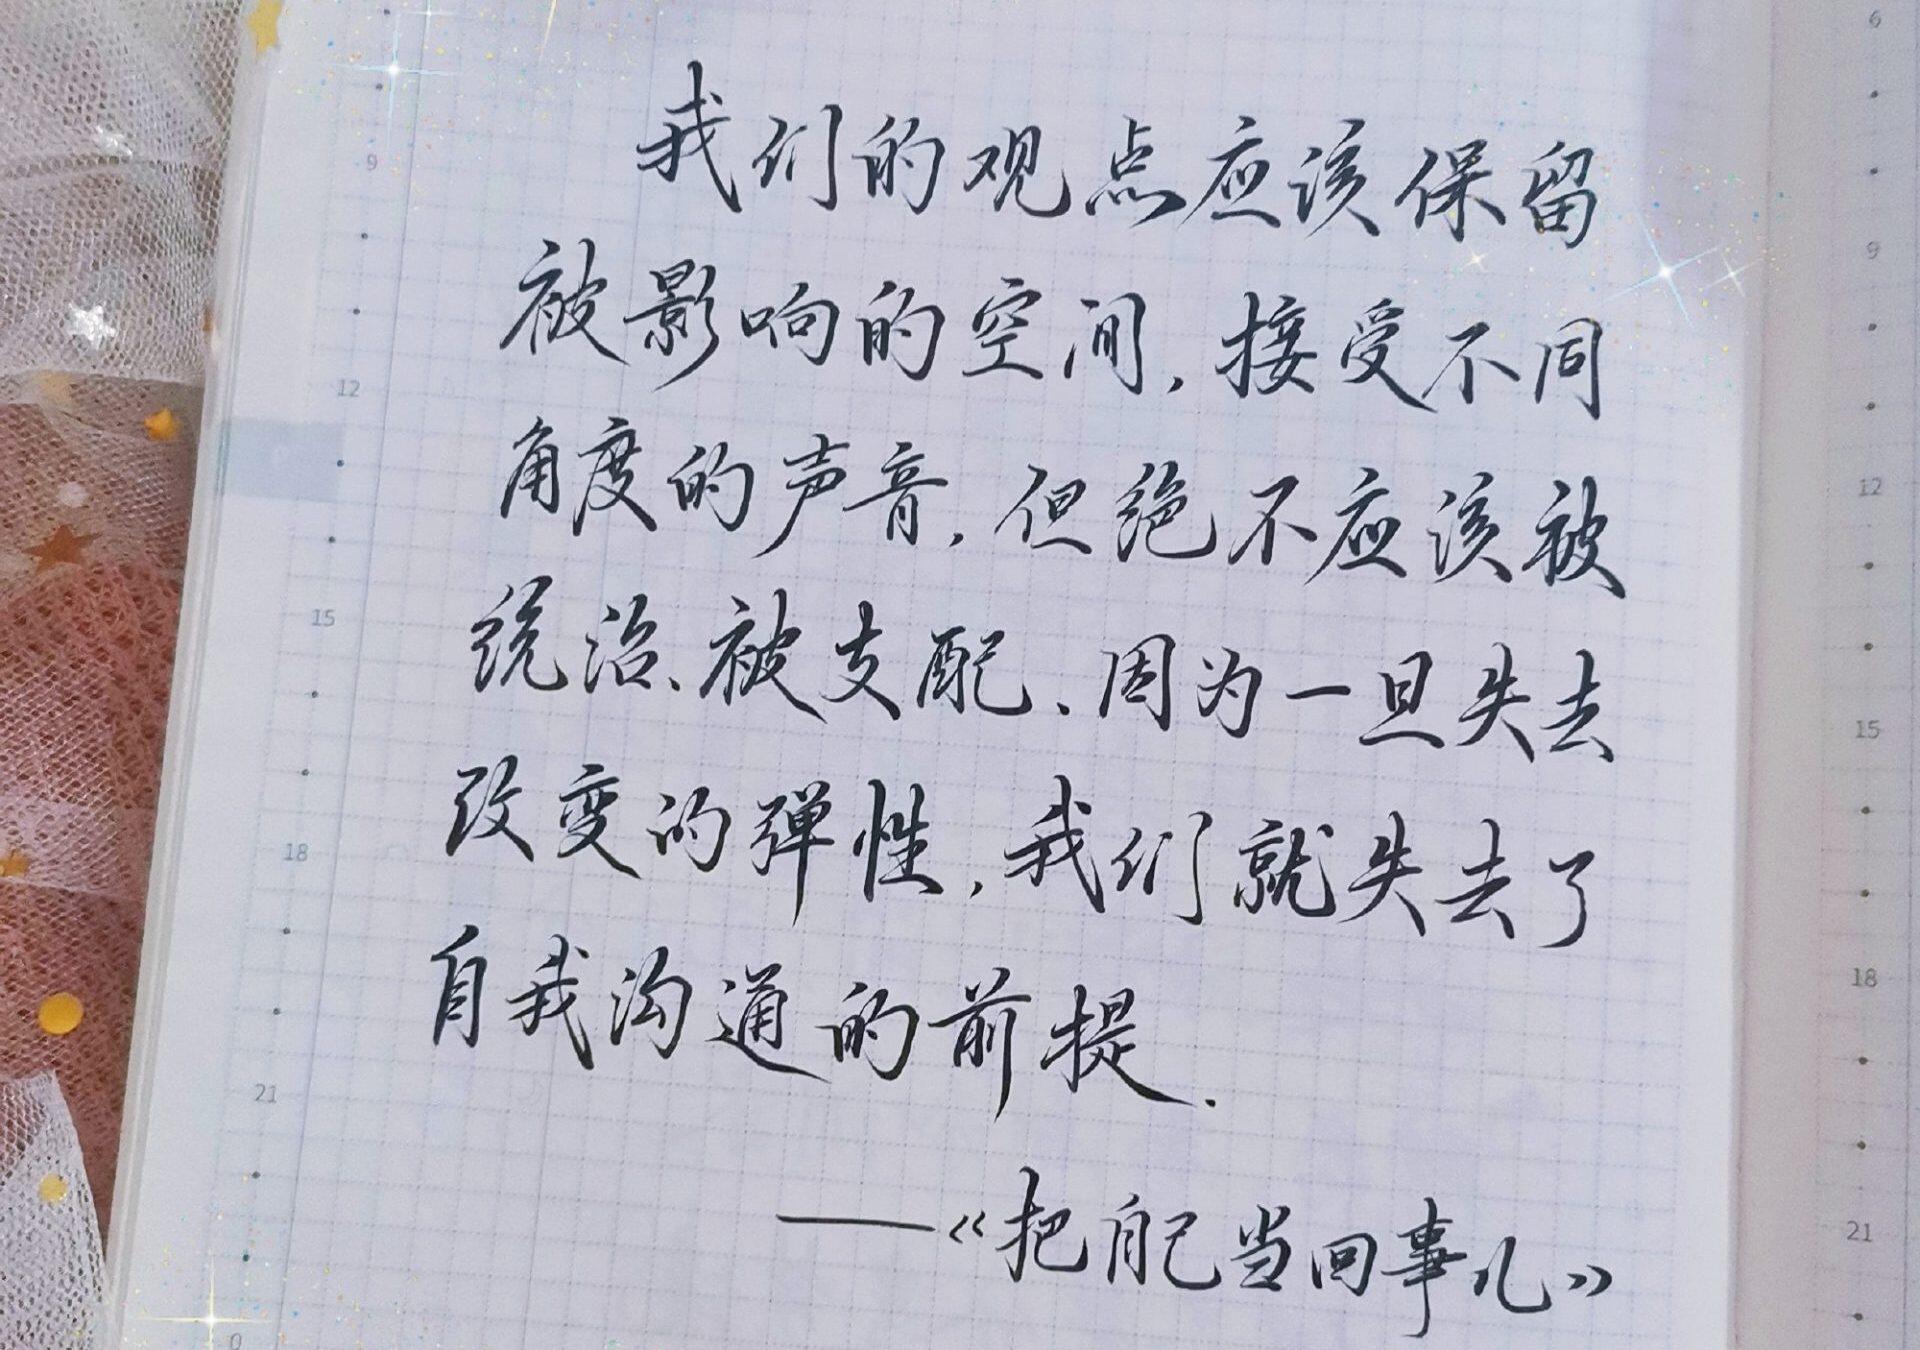 我们的观点应该保留
被影响的空间，接受不同
角度的声音，但绝不应该被
统治、被支配、因为一旦失去
改变的弹性，我们就失去了
自我沟通的前提.
——《把自己当回事儿》
9
12
15
18
21
0
6
9
12
15
18
21